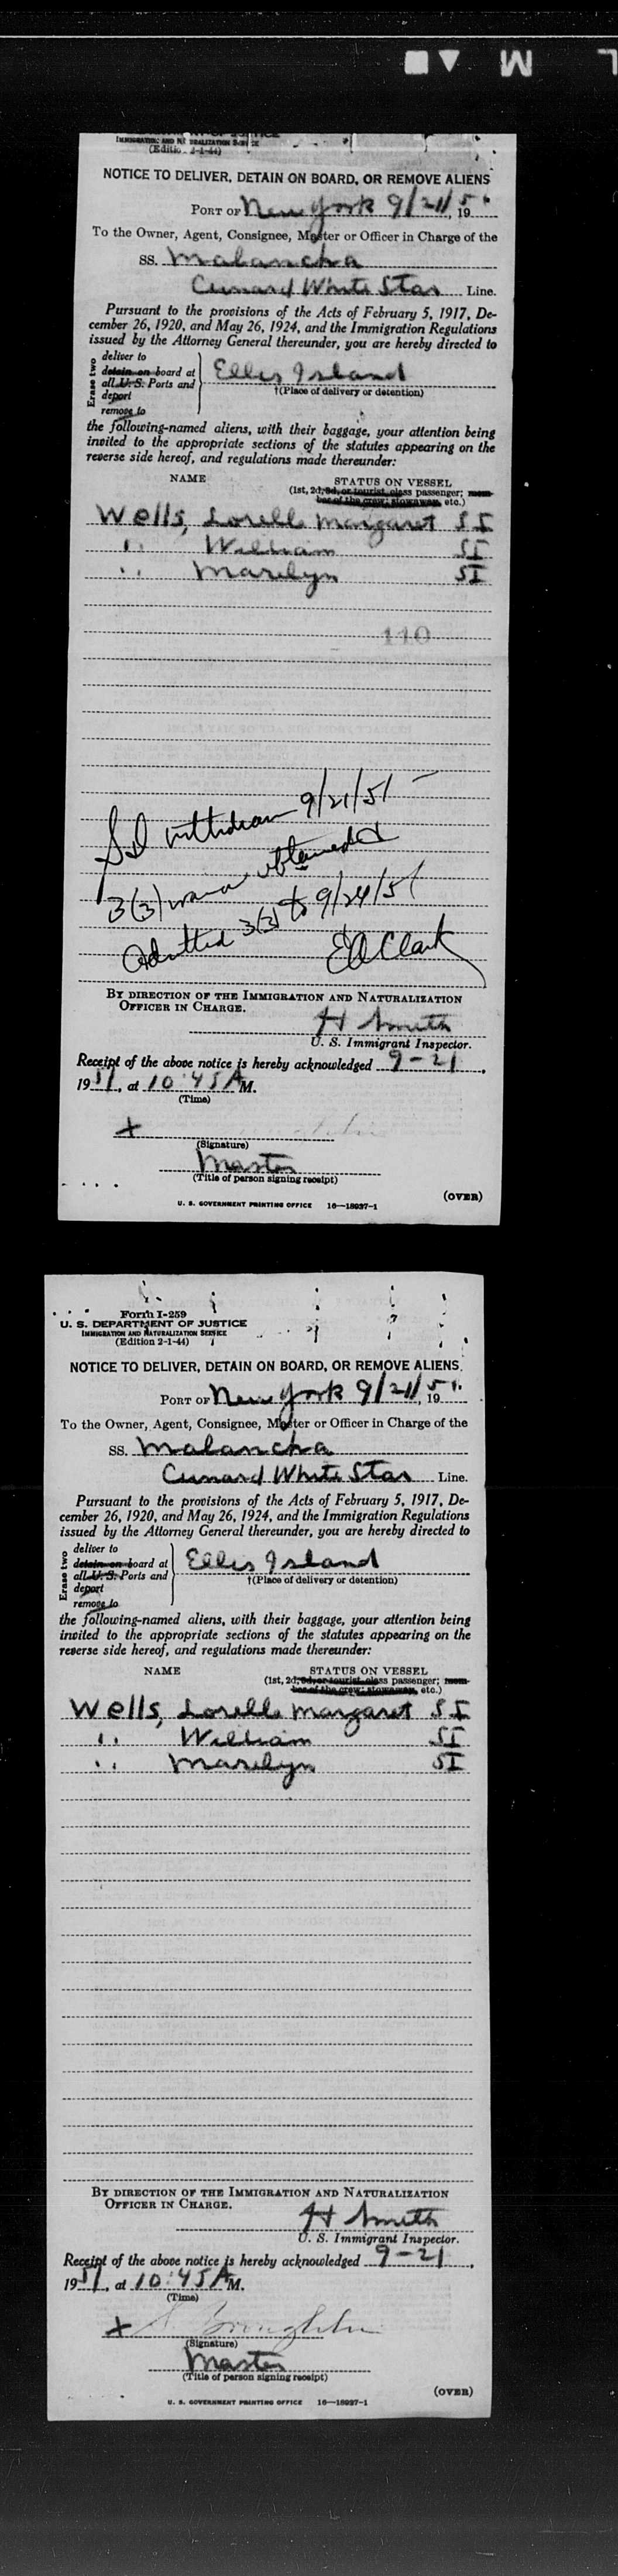 L M
U. S. DEPARTMENT OF JUSTICE
IMMIGRATION AND NATURALIZATION SERVICE
(Edition 2-1-44)
NOTICE TO DELIVER, DETAIN ON BOARD, OR REMOVE ALIENS
PORT OF New York 9/21/, 1951
To the Owner, Agent, Consignee, Master or Officer in Charge of the
SS. Malancha
Cunard White Star Line.
Pursuant to the provisions of the Acts of February 5, 1917, De-
cember 26, 1920, and May 26, 1924, and the Immigration Regulations
issued by the Attorney General thereunder, you are hereby directed to
Erase two
deliver to
detain on board at
all U. S. Ports and
deport
remove to
Ellis Island
†(Place of delivery or detention)
the following-named aliens, with their baggage, your attention being
invited to the appropriate sections of the statutes appearing on the
reverse side hereof, and regulations made thereunder:
NAME STATUS ON VESSEL
(1st, 2d, 3d, or tourist class passenger; mem-
ber of the crew, stowaway, etc.)
Wells, Lorelle Margaret SI
" William SI
" Marilyn SI
110
SI withdrawn 9/21/51
3(3) waiver obtained
Admitted 3(3) to 9/24/51
EA Clark
BY DIRECTION OF THE IMMIGRATION AND NATURALIZATION
OFFICER IN CHARGE.
H Smith
U. S. Immigrant Inspector.
Receipt of the above notice is hereby acknowledged 9-21,
1951, at 10:45 AM.
(Time)
+
(Signature)
Master
(Title of person signing receipt)
(OVER)
U. S. GOVERNMENT PRINTING OFFICE 16—18937-1
Form I-259
U. S. DEPARTMENT OF JUSTICE
IMMIGRATION AND NATURALIZATION SERVICE
(Edition 2-1-44)
NOTICE TO DELIVER, DETAIN ON BOARD, OR REMOVE ALIENS
PORT OF New York 9/21/, 1951
To the Owner, Agent, Consignee, Master or Officer in Charge of the
SS. Malancha
Cunard White Star Line.
Pursuant to the provisions of the Acts of February 5, 1917, De-
cember 26, 1920, and May 26, 1924, and the Immigration Regulations
issued by the Attorney General thereunder, you are hereby directed to
Erase two
deliver to
detain on board at
all U. S. Ports and
deport
remove to
Ellis Island
†(Place of delivery or detention)
the following-named aliens, with their baggage, your attention being
invited to the appropriate sections of the statutes appearing on the
reverse side hereof, and regulations made thereunder:
NAME STATUS ON VESSEL
(1st, 2d, 3d, or tourist class passenger; mem-
ber of the crew, stowaway, etc.)
Wells, Lorelle Margaret SI
" William SI
" Marilyn SI
BY DIRECTION OF THE IMMIGRATION AND NATURALIZATION
OFFICER IN CHARGE.
H Smith
U. S. Immigrant Inspector.
Receipt of the above notice is hereby acknowledged 9-21,
1951, at 10:45 AM.
(Time)
+
(Signature)
Master
(Title of person signing receipt)
(OVER)
U. S. GOVERNMENT PRINTING OFFICE 16—18937-1